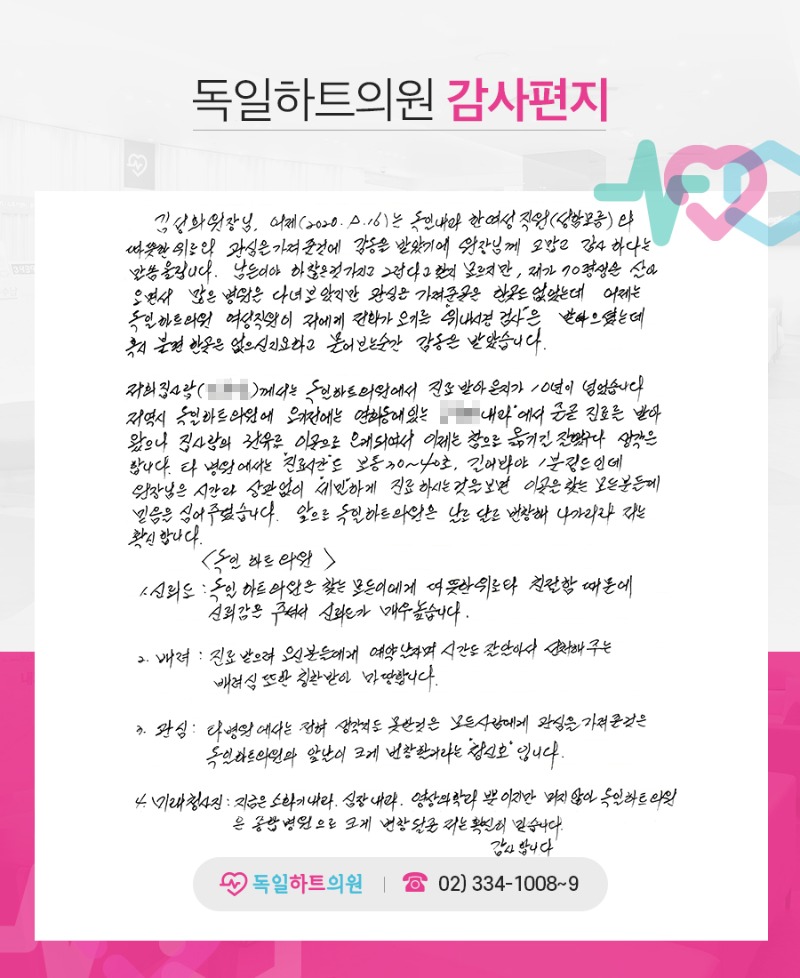 독일하트의원 감사편지
김성희원장님, 어제(2020. 16)는 독일내과 한여성직원(성함모름)의
따뜻한 위로와 관심을 가져준것에 감동을 받았기에 원장님께 고맙고 감사하다는
말씀 올립니다. 남들이야 하찮은것가지고 그런다고 할지 모르지만, 제가 70평생을 살아
오면서 많은 병원을 다녀보았지만 관심을 가져준곳은 한곳도 없었는데 어제는
독일하트의원 여성직원이 저에게 전화가 오기를 "위내시경 검사"를 받아으셨는데
혹시 불편한곳은 없으신지요하고 물어보는순간 감동을 받았습니다.
저희집사람( )께서는 독일하트의원에서 진료받아온지가 10년이 넘었습니다
저역시 독일하트의원에 오기전에는 연희동에있는 내과"에서 줄곧 진료를 받아
왔으나 집사람의 권유로 이곳으로 오게되여서 이제는 참으로 옮기길 잘했구나 생각을
합니다. 타 병원에서는 "진료시간"도 보통 30~40초, 길어봐야 1분 정도인데
원장님은 시간과 상관없이 "세밀"하게 진료하시는것을보면 이곳을찾는 모든분들에
믿음을 심어주셨습니다. 앞으로 독일하트의원은 날로 달로 번창해 나가리라 저는
확신합니다.
<독일 하트 의원>
1. 신뢰도 : 독일 하트의원을 찾는 모든이에게 따뜻한위로와 친절함 때문에
신뢰감을 주셔서 신뢰도가 매우높습니다.
2. 배려 : 진료 받으려 오신분들에게 예약날짜며 시간도 잘안아서 선처해주는
배려심 또한 칭찬받아 마땅합니다.
3. 관심 : 타병원에서는 전혀 생각지도 못한것을 모든사람에게 관심을 가져준것은
독일하트의원의 앞날이 크게 번창할거라는 "청신호"입니다.
4. 미래청사진 : 지금은 소화기내과. 심장내과. 영상의학과 뿐이지만 머지않아 독일하트의원
은 종합병원으로 크게 번창될줄 저는확신히 믿습니다.
감사합니다
독일하트의원 | 02) 334-1008~9